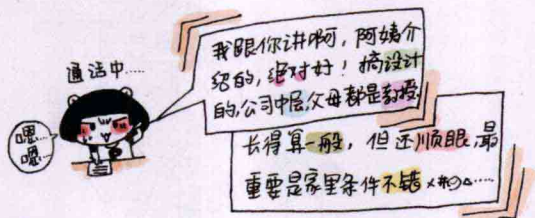 通话中……
嗯…
嗯…
我跟你讲啊，阿姨介
绍的，绝对好！搞设计
的，公司中层，父母都是教授，
长得算一般，但还顺眼，最
重要是家里条件不错